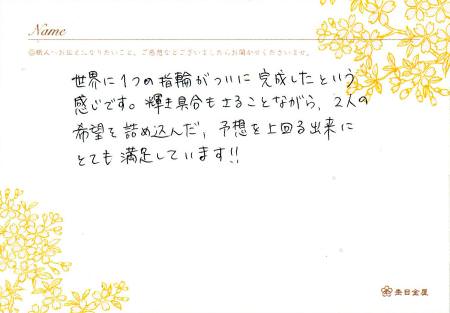 Name
◎職人へお伝えになりたいこと、ご感想などございましたらお聞かせくださいませ。
世界に1つの指輪がついに完成したという
感じです。輝き具合もさることながら、2人の
希望を詰め込んだ、予想を上回る出来に
とても満足しています!!
杢目金屋